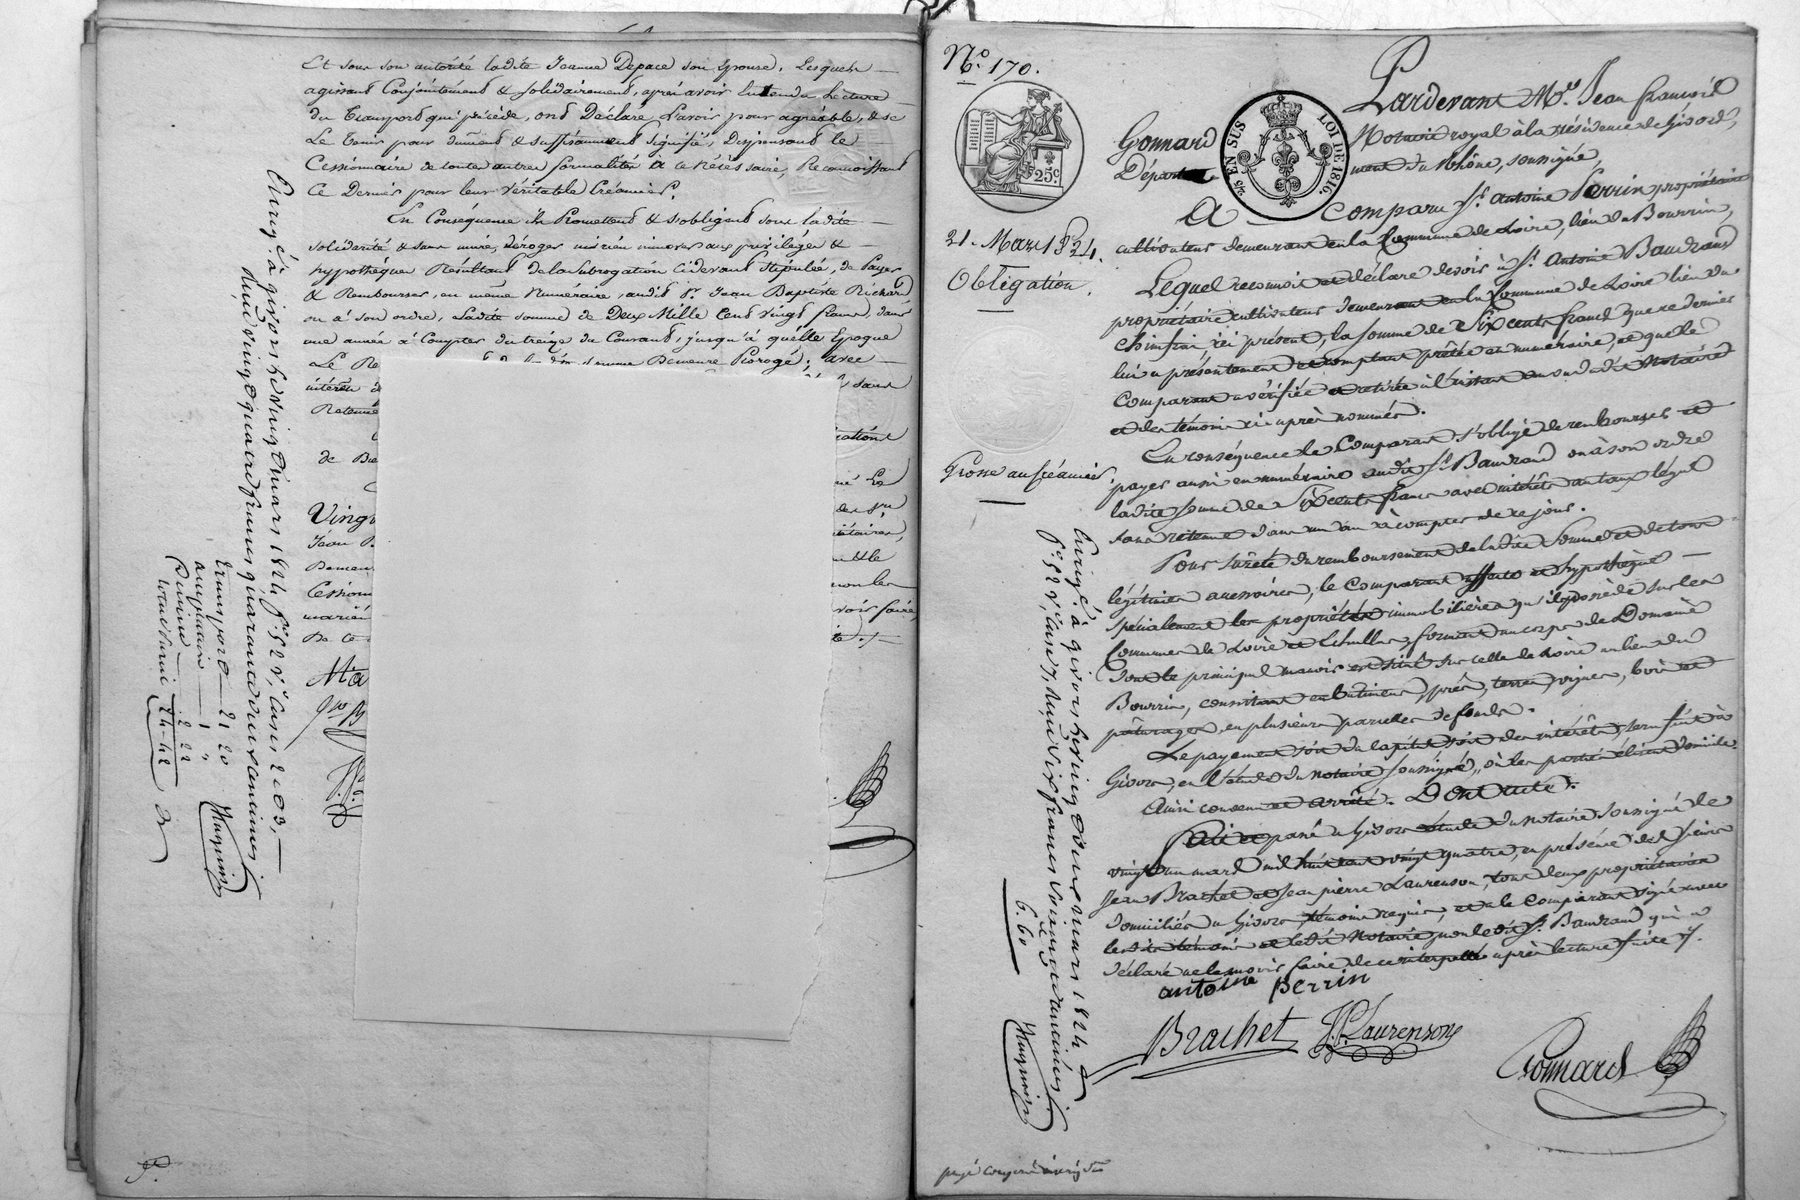 Et sous son autorité ladite Jeanne Depace son épouse, Lesquels
agissant Conjointement & solidairement, après avoir Entendu Lecture
du Transport qui précède, ont Déclaré L'avoir pour agréable, & se
Le tenir pour dûment & suffisamment signifié, Dispensant le
Cessionnaire de toutes autres formalités à ce Nécessaire, Reconnoissant
Ce Dernier pour leur véritable Créancier.
En Conséquence ils Promettent & s'obligent sous ladite
solidarité & sans nuire, déroger ni rien innover aux privilèges &
hypothèques Résultant de la subrogation cidevant stipulée, de Payer
& Rembourser, en même Numéraire, audit Sr. Jean Baptiste Richard
ou à son ordre, Ladite somme de Deux Mille Cent vingt francs, dans
une année à Compter du treize du Courant, jusqu'à quelle Epoque
Le Re
somme Demeure Prorogé; avec
intérêt
sans
Retenue
de
Vingt
Jean
Demeu
Cession
marié
De ce
Enrgé à givors le vingt deux mars 1824 fo. 52 vo. Cases 2 et 3,
reçu vingt quatre francs quarante deux centimes
Transport 21 20
2 22
24 42
No. 170.
25c.
25c EN SUS
LOI DE 1816.
21. Mars 1824.
Obligation.
Grosse au Créancier.
Pardevant Me. Jean francois
Gonnard Notaire royal à la résidence de Givors,
Département du Rhône, soussigné,
A Comparu Sr. Antoine Perrin propriétaire
cultivateur demeurant en la Commune de Loire, lieu du Bourrin,
Lequel reconnoit et déclare devoir à Sr. Antoine Baudrand
propriétaire cultivateur demeurant en la Commune de Loire lieu du
ici présent, la somme de Six cents francs que ce dernier
lui a présentement et comptant prêtée en numéraire, et que le
Comparant a vérifiée et retirée à l'instant au vu dudit Notaire
et des témoins ci après nommés.
En conséquence le Comparant s'oblige de rembourser et
payer aussi en numéraire audit Sr. Baudrand ou à son ordre
ladite somme de Six cents francs avec intérêts au taux légal
sans retenue dans un an à compter de ce jour.
Pour sûreté du remboursement de ladite Somme et de tous
légitimes accessoires, le Comparant affecte et hypothèque
spécialement les propriétés immobilières qu'il possède sur les
Communes de Loire et Echallas, formant un corps de Domaine
dont le principal manoir est situé sur celle de Loire au lieu du
Bourrin, consistant en bâtiments, prés, terres, vignes, bois et
pâturages, en plusieurs parcelles de fonds.
Le payement soit du capital soit des intérêts, sera fait à
Givors, en l'étude du notaire soussigné, où les parties élisent domicile
Ainsi convenu et arrêté. Dont acte.
Fait et passé à Givors étude du notaire soussigné le
vingt un mars mil huit cent vingt quatre, en présence des sieurs
Jean Brachet et Jean pierre Laurenson, tous deux propriétaires
domiciliés à Givors, témoins requis, et a le Comparant signé avec
lesdits témoins et ledit Notaire, non ledit Sr. Baudrand qui a
déclaré ne le savoir faire de ce interpellé après lecture faite.
antoine perrin
Brachet J.P. Laurenson
Gonnard
Enrgé à givors le vingt deux mars 1824
fo. 52 vo. Case 7, reçu six francs soixante centimes
6. 60